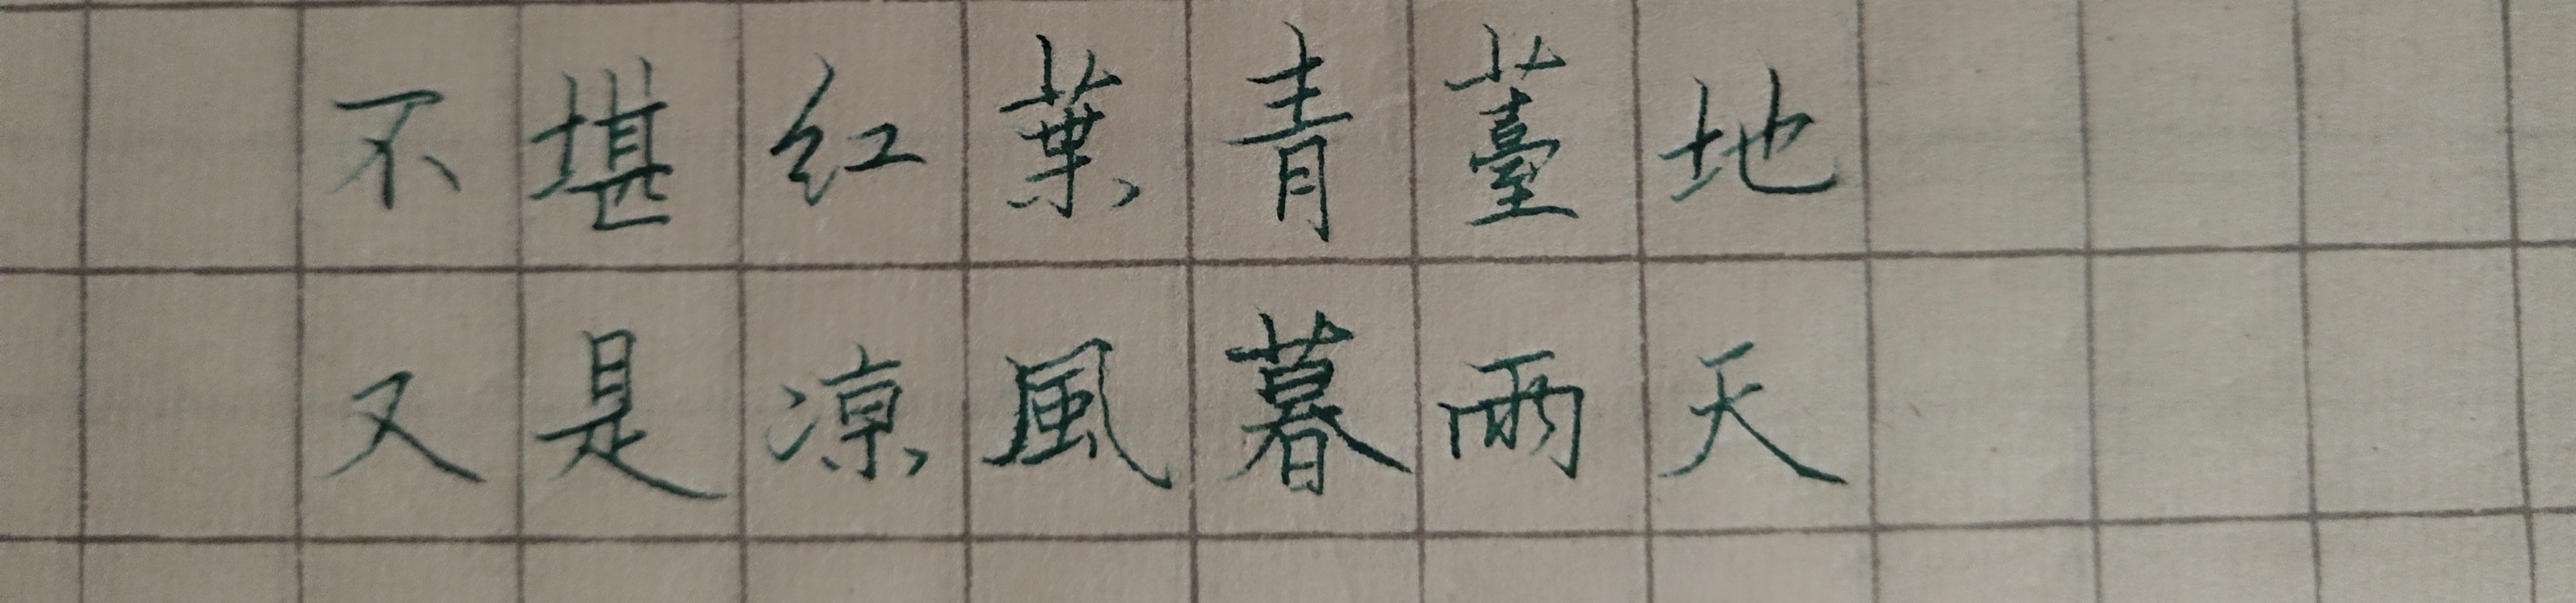 不堪红葉青薹地
又是凉風暮雨天